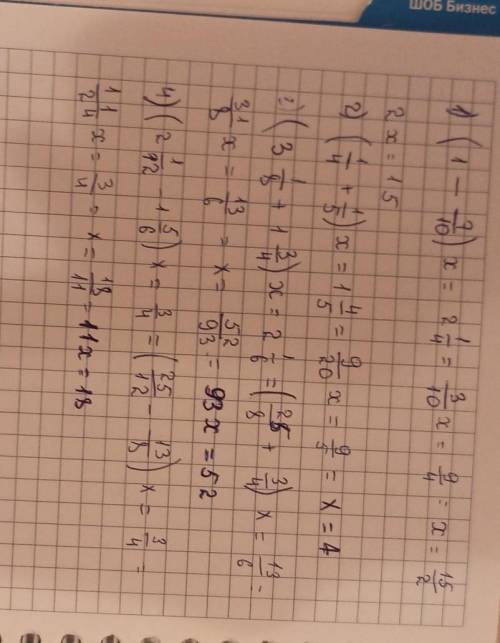 ШОБ Бизнес
1) (1 - 7/10) x = 2 1/4 = 3/10 x = 9/4 = x = 15/2
2x = 15
2) (1/4 + 1/5) x = 1 4/5 = 9/20 x = 9/5 = x = 4
(3 1/8 + 1 3/4) x = 2 1/6 = (25/8 + 3/4) x = 13/6 =
31/8 x = 13/6 = x = 52/93 = 93x = 52
4) (2 1/12 - 1 5/6) x = 3/4 = (25/12 - 13/ ) x = 3/4 =
11/24 x = 3/4 = x = 18/11 = 11x = 18